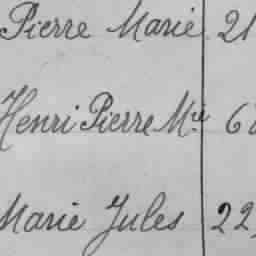 Pierre Marie 21
Henri Pierre Mie 6
Marie Jules 22